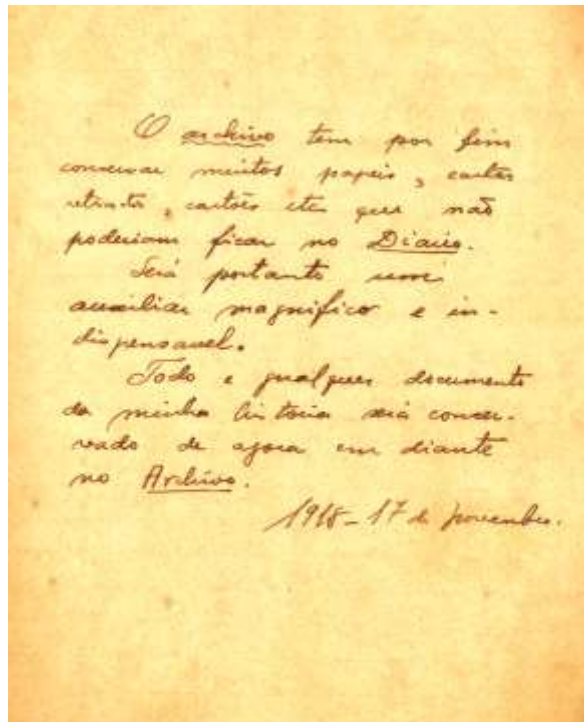 O archivo tem por fim
conservar muitos papeis, cartas
retratos, cartões etc que não
poderiam ficar no Diario.
Será portanto um
auxiliar magnifico e in-
dispensavel.
Todo e qualquer documento
da minha historia será conser-
vado de agora em diante
no Archivo.
1918 - 17 de novembro.